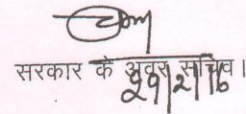 सरकार के अवर सचिव।
29/2/16